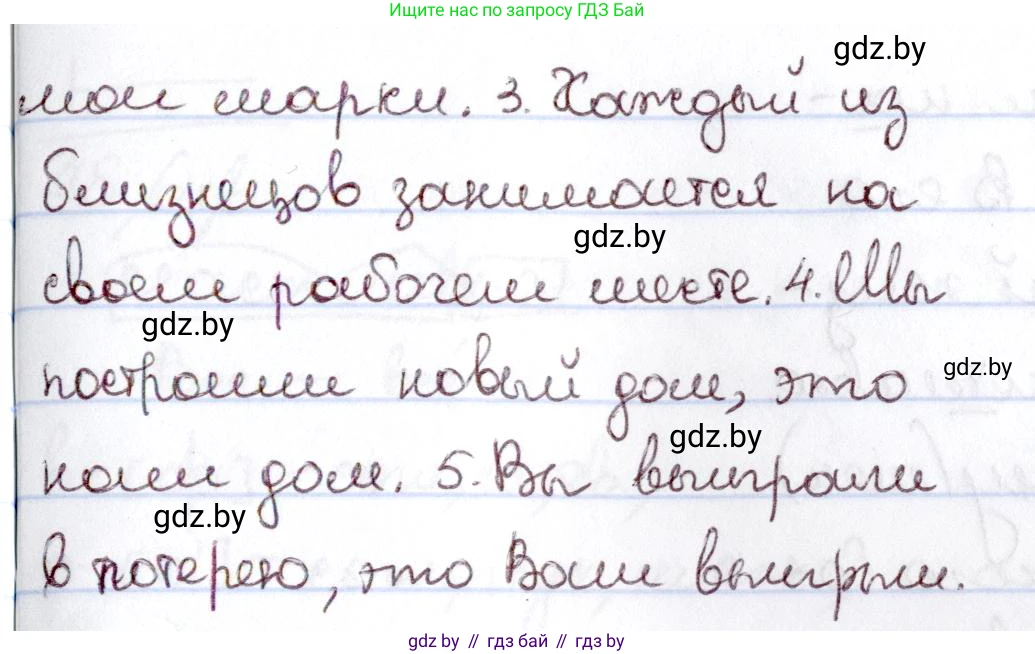 Ищите нас по запросу ГДЗ Бай
gdz.by
мои марки. 3. Каждый из
близнецов занимается на
gdz.by
своем рабочем месте. 4. Мы
gdz.by
построили новый дом, это
gdz.by
gdz.by
наш дом. 5. Вы выиграли
gdz.by
в лотерею, это Ваш выигрыш.
gdz.by // гдз бай // гдз.by